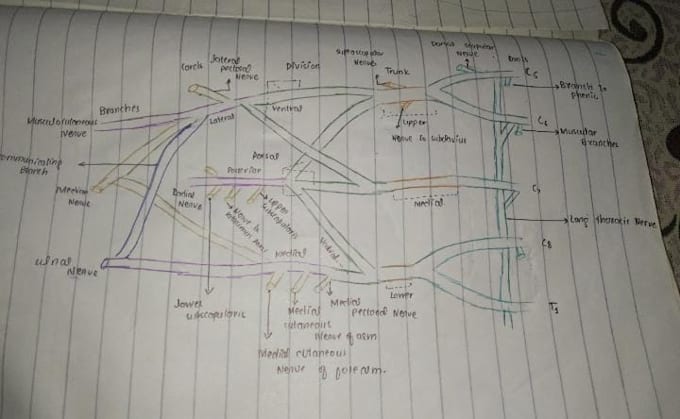 Dorsal scapular
Nerve
Roots
suprascapular
Nerve
lateral
pectoral
Nerve
Cords
Division
Trunk
C5
Branch to
phrenic
Branches
Musculocutaneous
Nerve
Lateral
Ventral
Upper
Nerve to subclavius
C6
Muscular
Branches
Communicating
Branch
Dorsal
Posterior
Median
Nerve
Radial
Nerve
Nerve to
Upper
subscapularis
Medial
C7
Long thoracic Nerve
Ventral
C8
Ulnal
Nerve
Medial
Lower
T1
lower
subscapularis
Medial
cutaneous
Nerve of arm
Medial
pectoral Nerve
Medial cutaneous
Nerve of forearm.